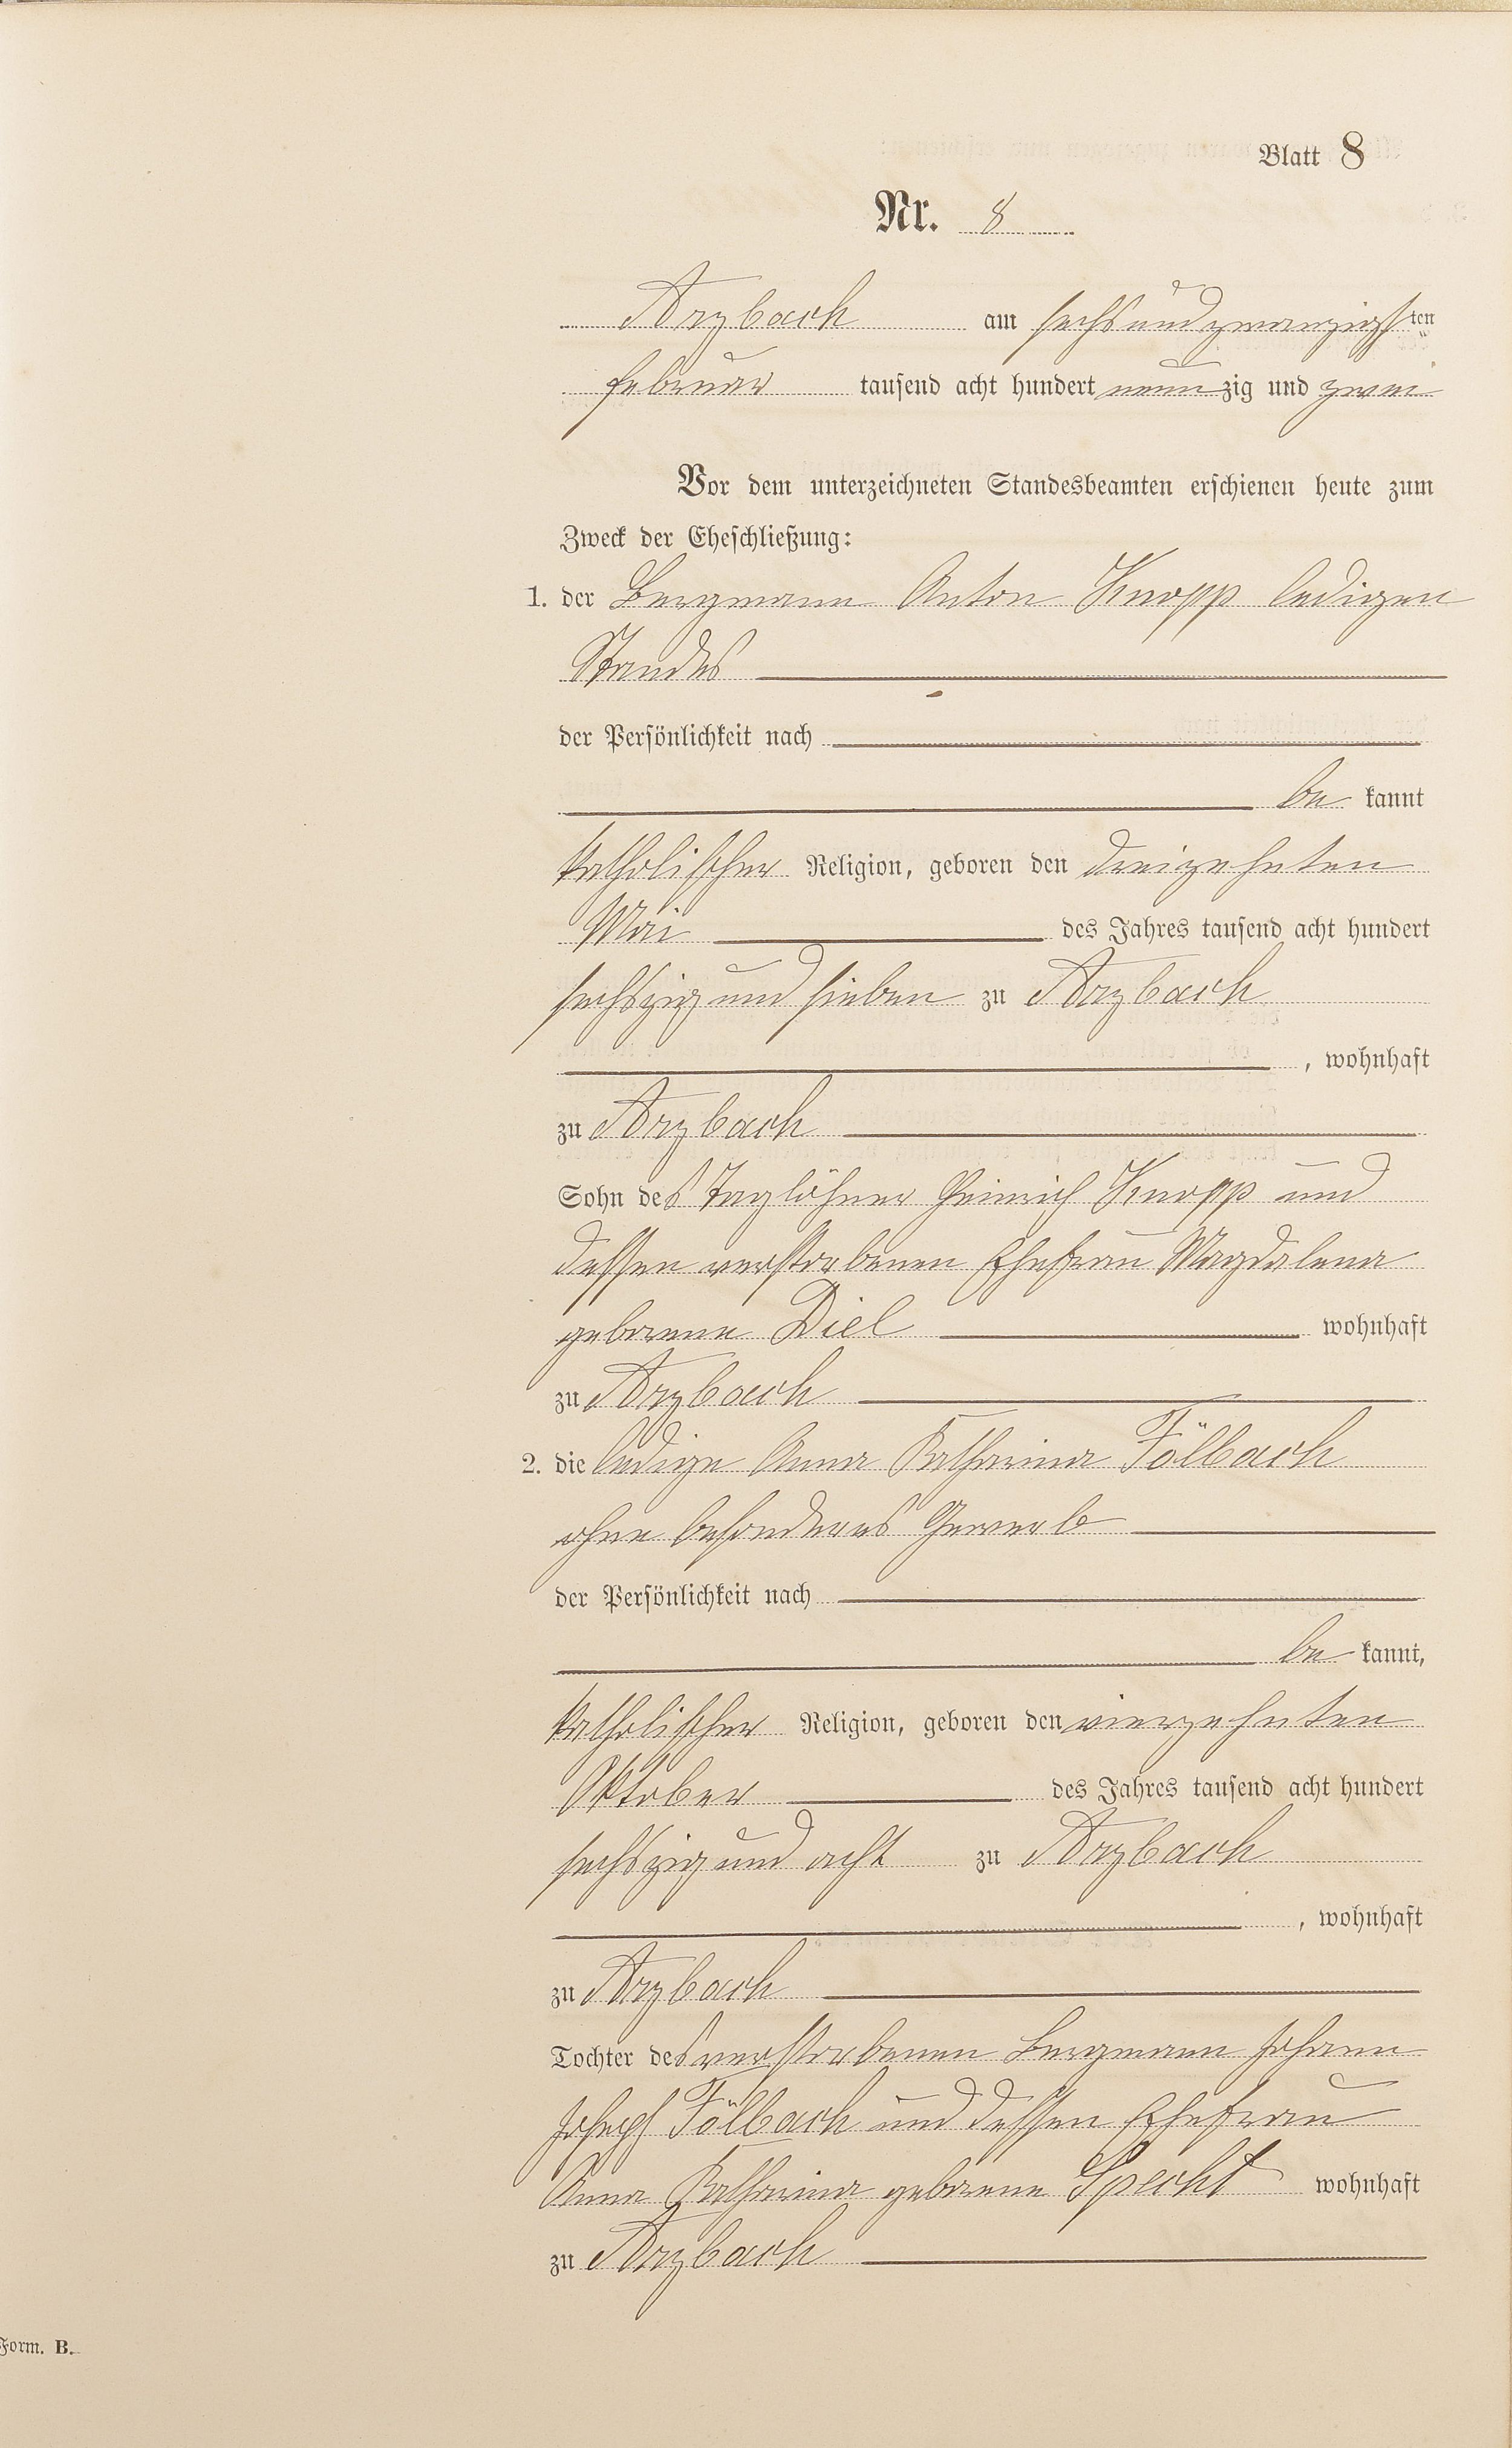 Blatt 8
Nr. 8
Arzbach am sechsundzwanzigsten
Februar tausend acht hundert neunzig und zwei
Vor dem unterzeichneten Standesbeamten erschienen heute zum
Zweck der Eheschließung:
1. der Bergmann Anton Knopp ledigen
Standes
der Persönlichkeit nach
be kannt
katholischer Religion, geboren den dreizehnten
Mai des Jahres tausend acht hundert
sechszig und sieben zu Arzbach
, wohnhaft
zu Arzbach
Sohn des Taglöhner Heinrich Knopp und
dessen verstorbenen Ehefrau Magdalena
geborene Diel wohnhaft
zu Arzbach
2. die ledige Anna Katharina Fölbach
ohne besonderes Gewerb
der Persönlichkeit nach
be kannt,
katholischer Religion, geboren den vierzehnten
Oktober des Jahres tausend acht hundert
sechszig und acht zu Arzbach
, wohnhaft
zu Arzbach
Tochter des verstorbenen Bergmann Johann
Joseph Fölbach und dessen Ehefrau
Anna Katharina geborene Specht wohnhaft
zu Arzbach
Form. B.